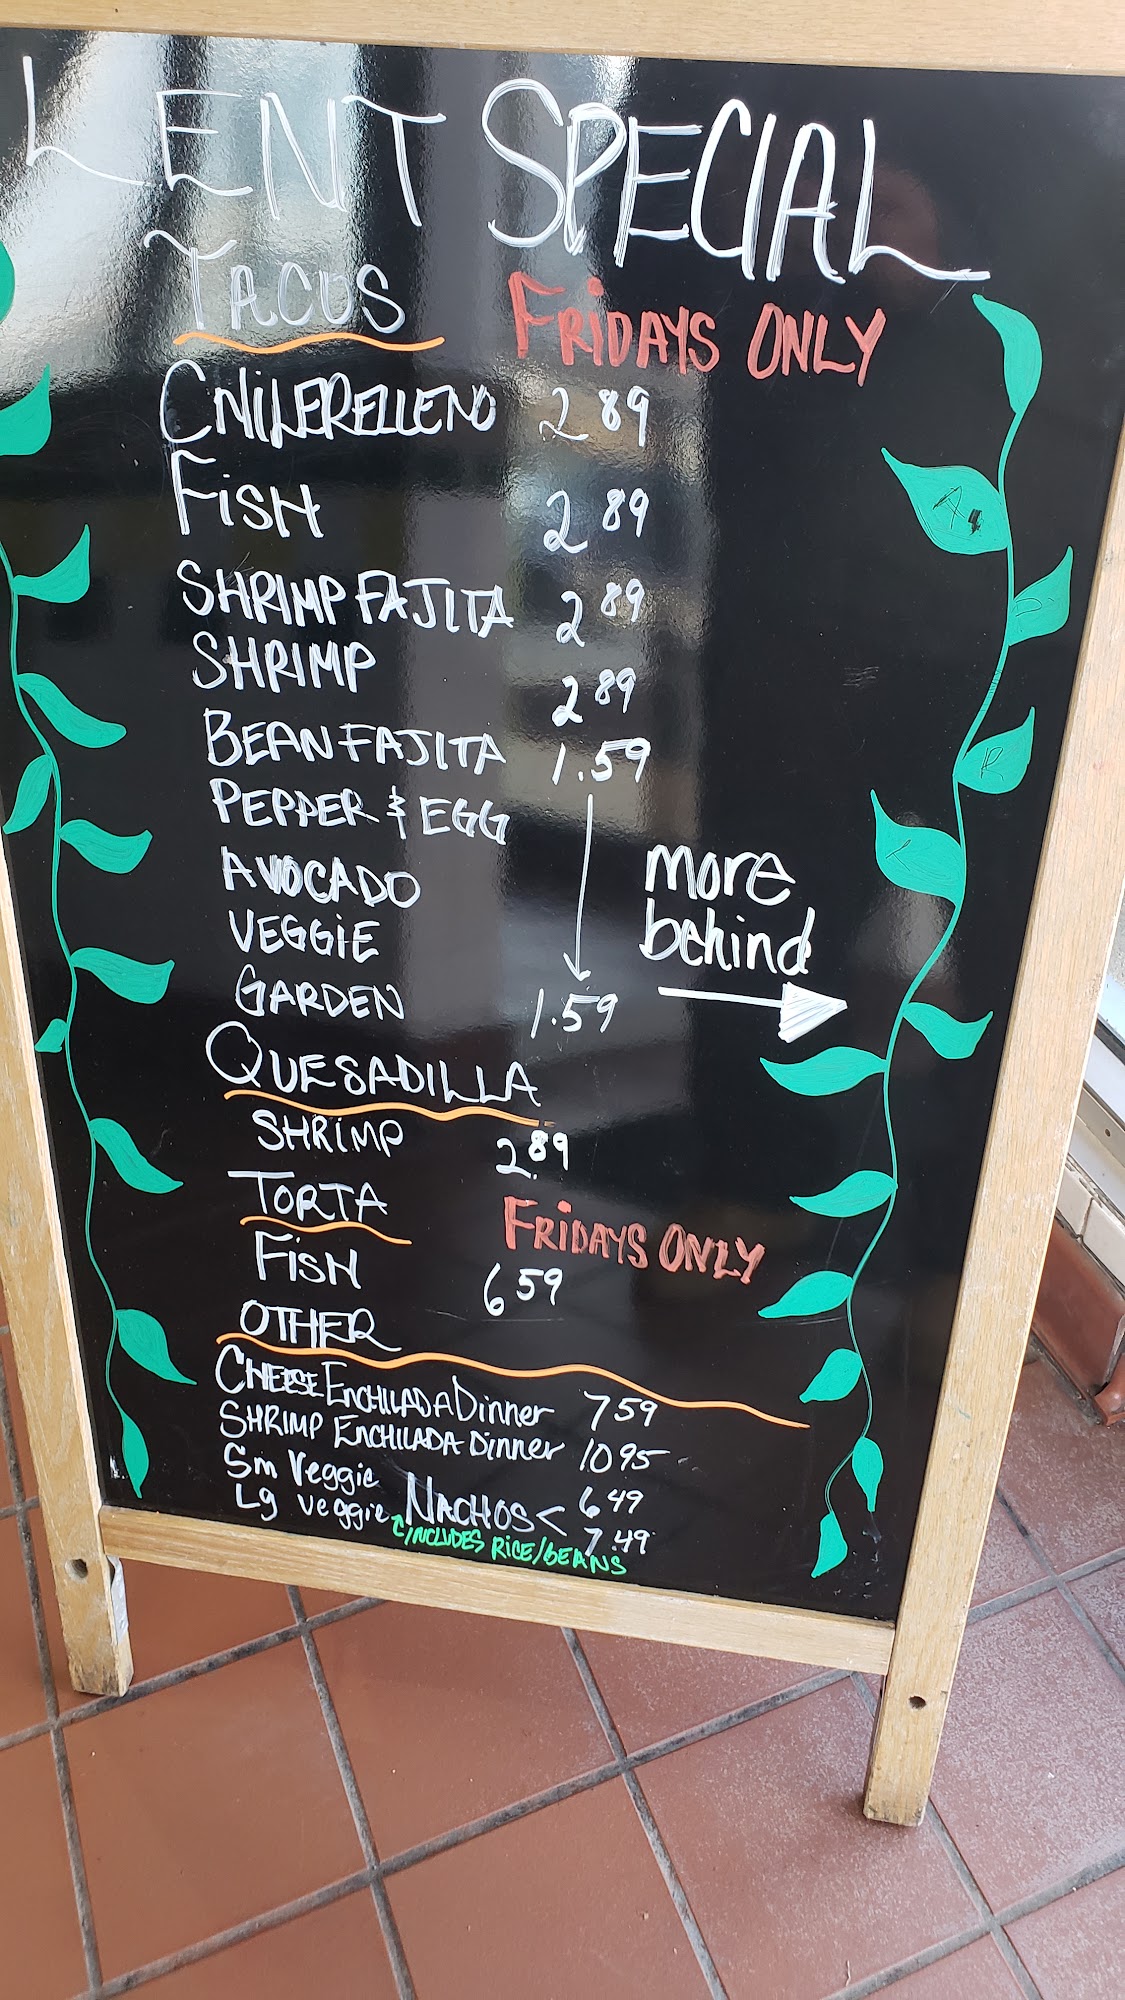 LENT SPECIAL
TACOS FRIDAYS ONLY
CHILERELLENO 2 89
FISH 2 89
SHRIMP FAJITA 2 89
SHRIMP 2 89
BEAN FAJITA 1.59
PEPPER & EGG
AVOCADO
VEGGIE
GARDEN 1.59
more
behind
QUESADILLA
SHRIMP 2.89
TORTA FRIDAYS ONLY
FISH 6 59
OTHER
CHEESE ENCHILADA Dinner 7 59
SHRIMP ENCHILADA Dinner 10 95
Sm Veggie 6 49
Lg Veggie NACHOS < 7.49
INCLUDES RICE/BEANS